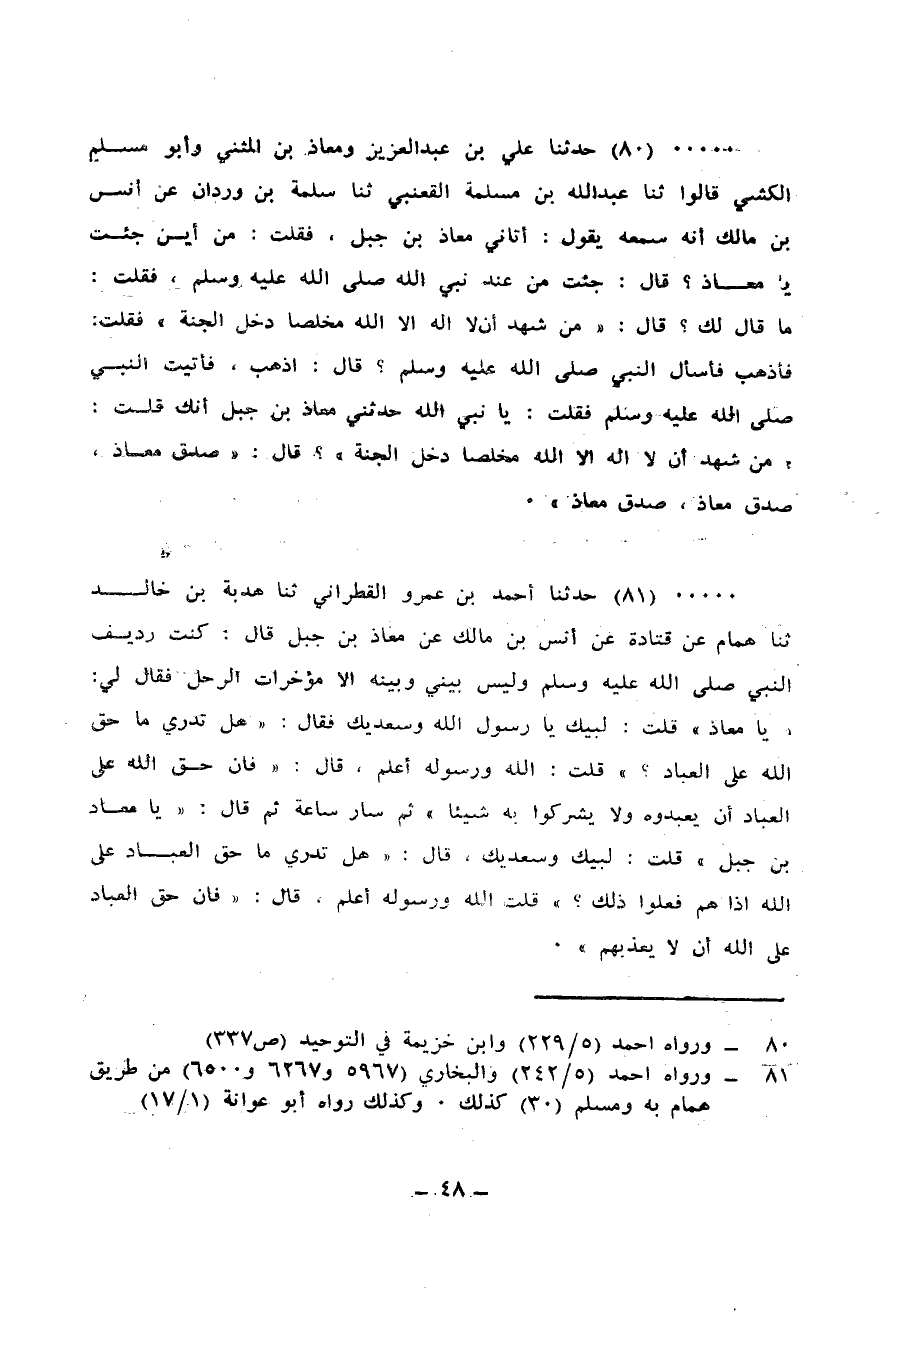 ٠٠٠٠٠ (٨٠) حدثنا علي بن عبدالعزيز ومعاذ بن المثني وأبو مسلم
الكشي قالوا ثنا عبدالله بن مسلمة القعنبي ثنا سلمة بن وردان عن أنس
بن مالك أنه سمعه يقول : أتاني معاذ بن جبل ، فقلت : من أين جئت
يا معاذ ؟ قال : جئت من عند نبي الله صلى الله عليه وسلم ، فقلت :
ما قال لك ؟ قال : « من شهد أن لا اله الا الله مخلصا دخل الجنة » فقلت:
فأذهب فأسأل النبي صلى الله عليه وسلم ؟ قال : اذهب ، فأتيت النبي
صلى الله عليه وسلم فقلت : يا نبي الله حدثني معاذ بن جبل أنك قلت :
« من شهد أن لا اله الا الله مخلصا دخل الجنة » ؟ قال : « صدق معاذ ،
صدق معاذ ، صدق معاذ » ٠
٠٠٠٠٠ (٨١) حدثنا أحمد بن عمرو القطراني ثنا هدبة بن خالد
ثنا همام عن قتادة عن أنس بن مالك عن معاذ بن جبل قال : كنت رديف
النبي صلى الله عليه وسلم وليس بيني وبينه الا مؤخرات الرحل فقال لي:
« يا معاذ » قلت : لبيك يا رسول الله وسعديك فقال : « هل تدري ما حق
الله على العباد ؟ » قلت : الله ورسوله أعلم ، قال : « فان حق الله على
العباد أن يعبدوه ولا يشركوا به شيئا » ثم سار ساعة ثم قال : « يا معاد
بن جبل » قلت : لبيك وسعديك ، قال : « هل تدري ما حق العباد على
الله اذا هم فعلوا ذلك ؟ » قلت الله ورسوله أعلم ، قال : « فان حق العباد
على الله أن لا يعذبهم » ٠
٨٠ – ورواه احمد (٢٢٩/٥) وابن خزيمة في التوحيد (ص٣٣٧)
٨١ – ورواه احمد (٢٤٢/٥) والبخاري (٥٩٦٧ و٦٢٦٧ و٦٥٠٠) من طريق
همام به ومسلم (٣٠) كذلك ٠ وكذلك رواه أبو عوانة (١٧/١)
– ٤٨ –